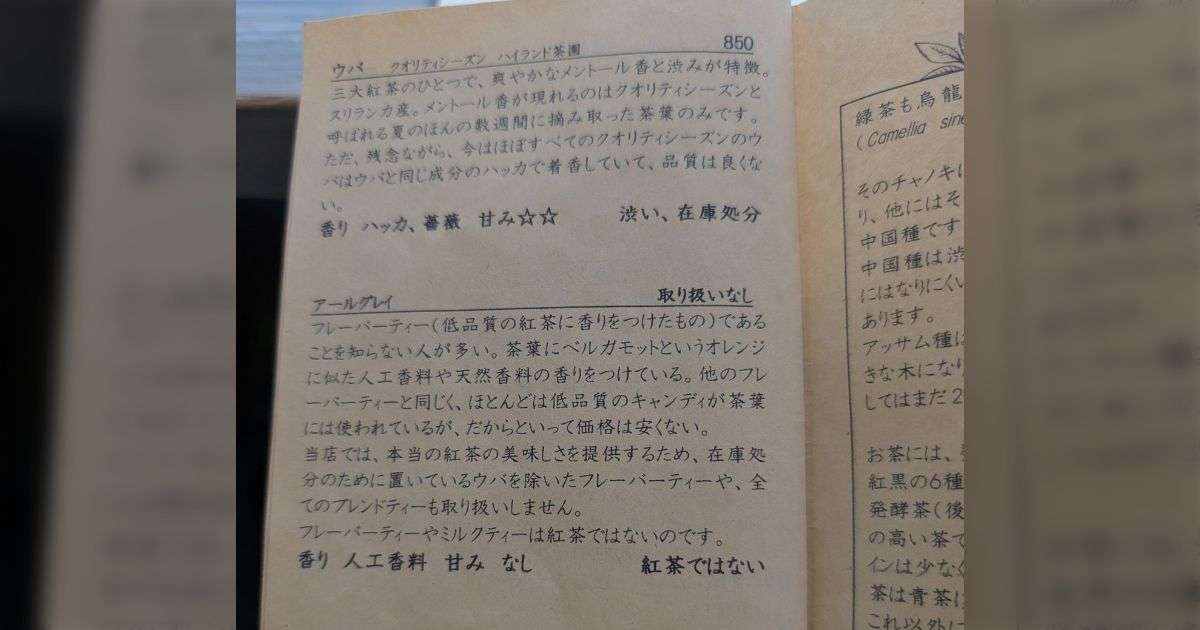 ウバ クオリティシーズン ハイランド茶園 850
三大紅茶のひとつで、爽やかなメントール香と渋みが特徴。
スリランカ産。メントール香が現れるのはクオリティシーズンと
呼ばれる夏のほんの数週間に摘み取った茶葉のみです。
ただ、残念ながら、今はほぼすべてのクオリティシーズンのウ
バはウバと同じ成分のハッカで着香していて、品質は良くな
い。
香り ハッカ、薔薇 甘み☆☆ 渋い、在庫処分
アールグレイ 取り扱いなし
フレーバーティー(低品質の紅茶に香りをつけたもの)である
ことを知らない人が多い。茶葉にベルガモットというオレンジ
に似た人工香料や天然香料の香りをつけている。他のフレ
ーバーティーと同じく、ほとんどは低品質のキャンディが茶葉
には使われているが、だからといって価格は安くない。
当店では、本当の紅茶の美味しさを提供するため、在庫処
分のために置いているウバを除いたフレーバーティーや、全
てのブレンドティーも取り扱いしません。
フレーバーティーやミルクティーは紅茶ではないのです。
香り 人工香料 甘み なし 紅茶ではない
緑茶も烏龍
(Camellia sine
そのチャノキに
り、他にはそ
中国種です
中国種は渋
にはなりにくい
あります。
アッサム種は
きな木になり
してはまだ2
お茶には、
紅黒の6種
発酵茶(後
の高い茶で
インは少なく
茶は青茶に
これ以外に